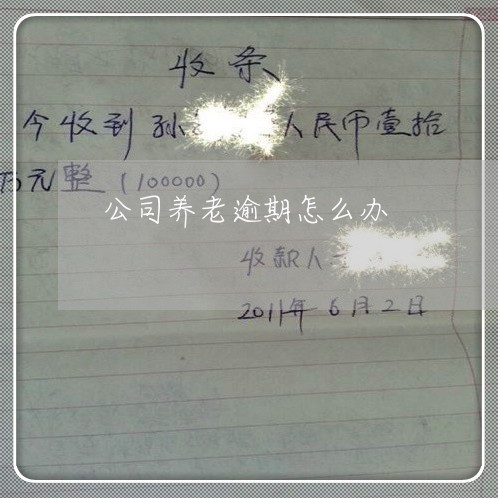 收条
今收到孙 人民币壹拾
万元整(100000)
公司养老逾期怎么办
收款人
2011年6月2日